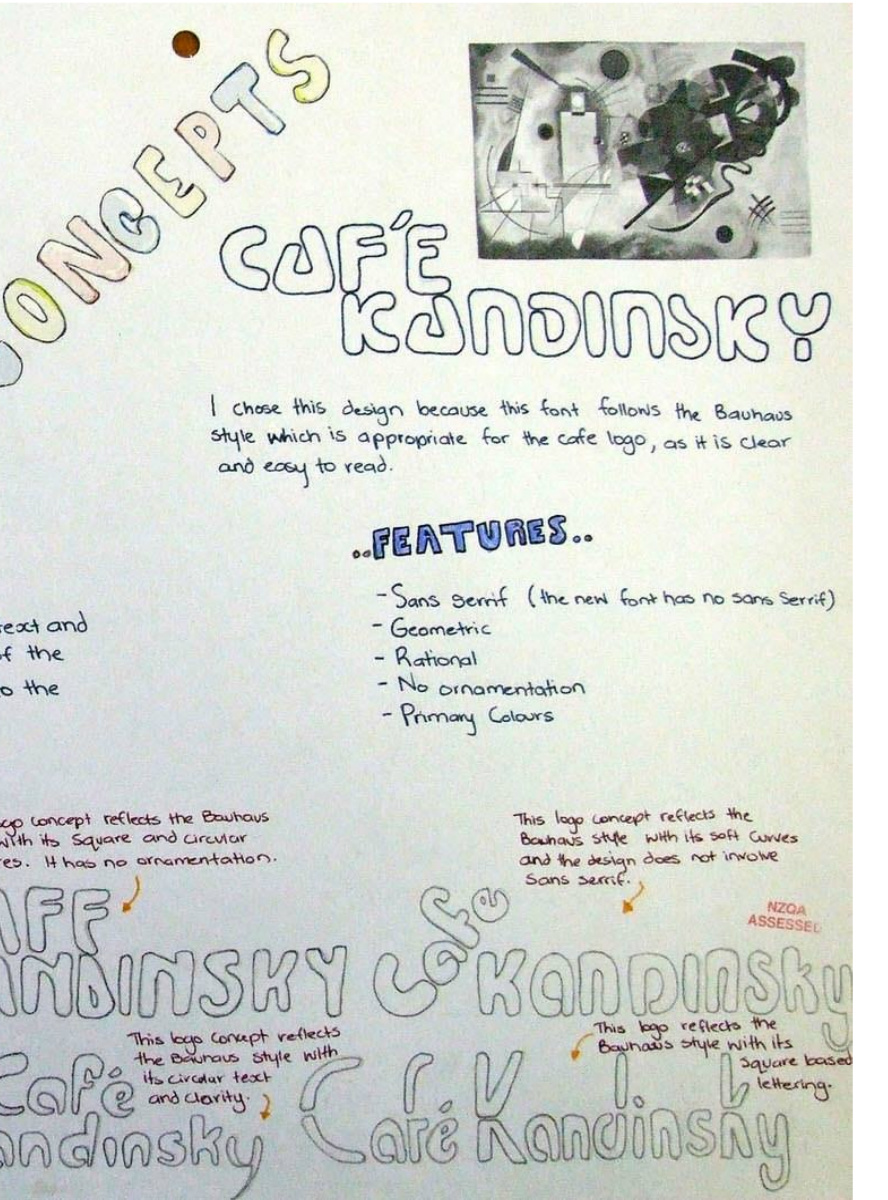 CONCEPTS
CAFÉ
KANDINSKY
I chose this design because this font follows the Bauhaus
style which is appropriate for the cafe logo, as it is clear
and easy to read.
..FEATURES..
- Sans serrif (the new font has no sans serrif)
- Geometric
- Rational
- No ornamentation
- Primary Colours
text and
of the
to the
logo concept reflects the Bauhaus
with its Square and circular
res. It has no ornamentation.
This logo concept reflects the
Bauhaus style with its soft curves
and the design does not involve
Sans serrif.
NZQA
ASSESSED
AFF
ANDINSKY
Cafe
Kandinsky
This logo concept reflects
the Bauhaus style with
its circular text
and clarity.
This logo reflects the
Bauhaus style with its
Square based
lettering.
Café
andinsky
Café Kandinsky